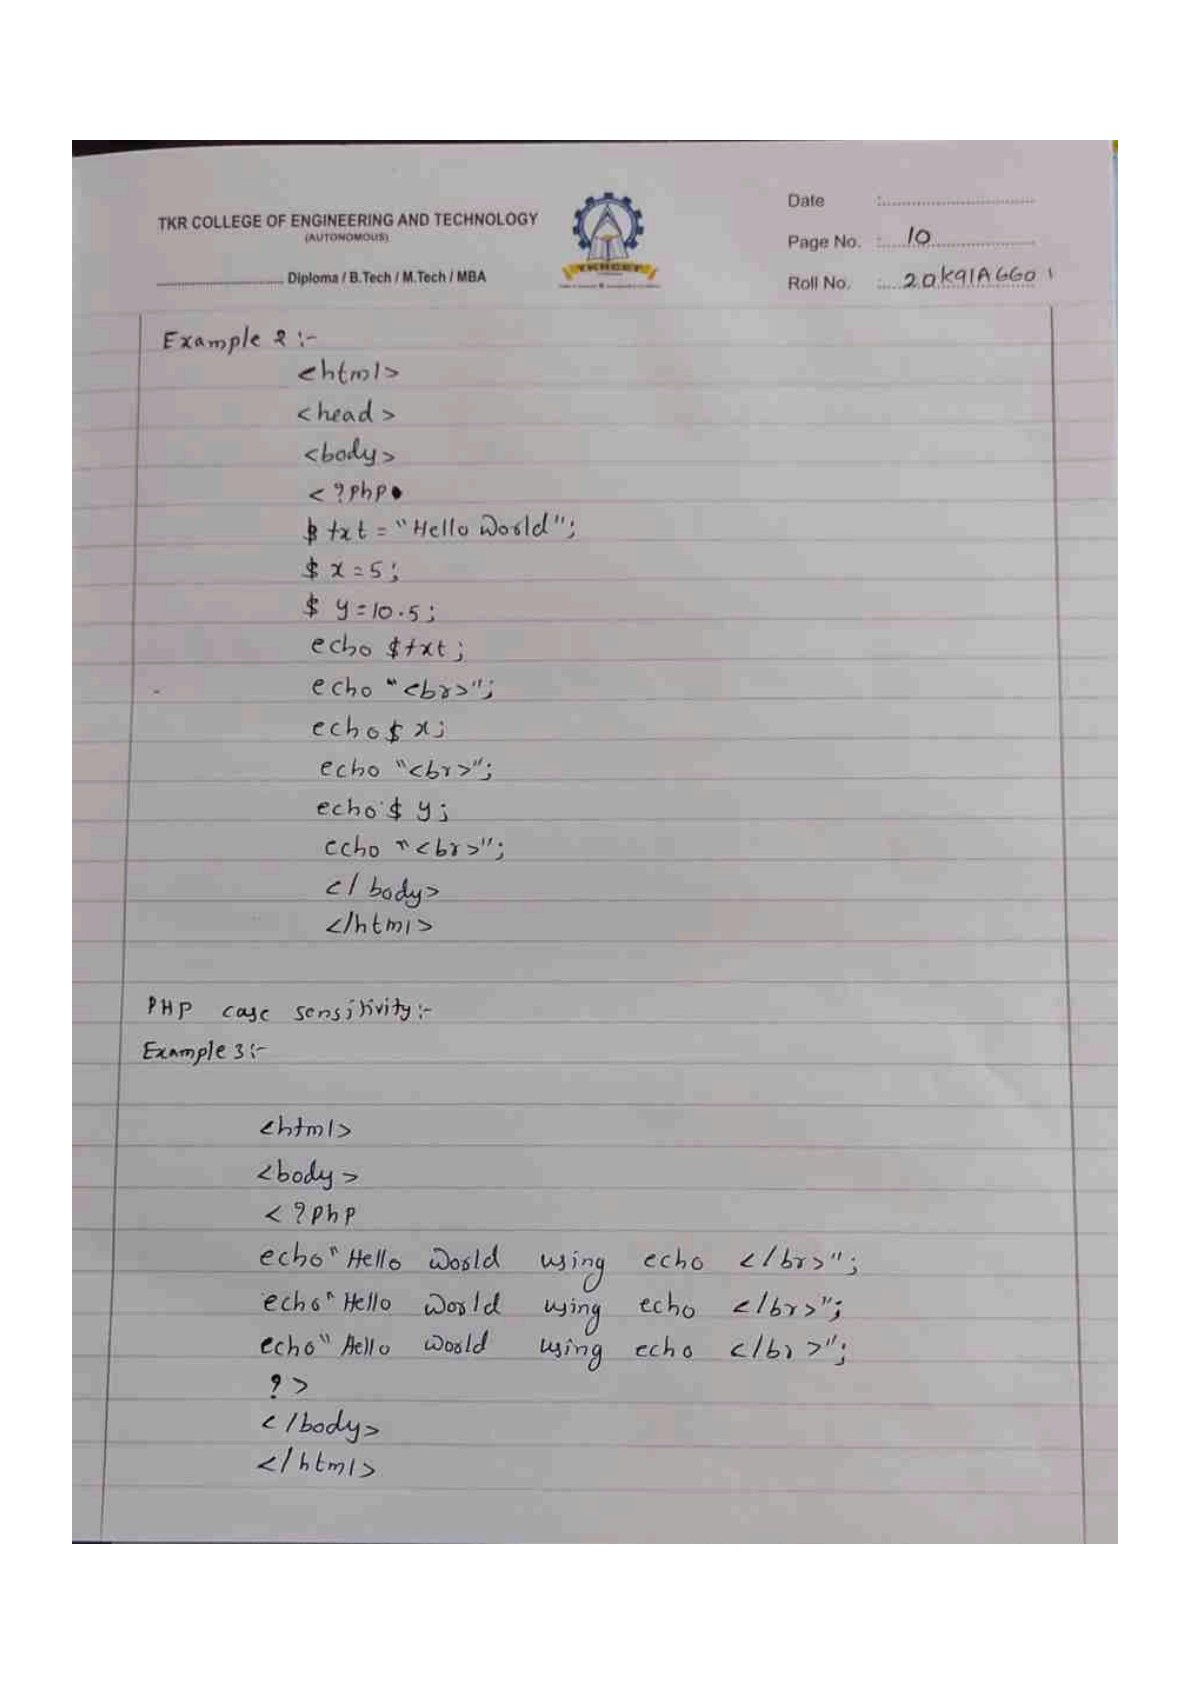 TKR COLLEGE OF ENGINEERING AND TECHNOLOGY
(AUTONOMOUS)
Diploma / B.Tech / M.Tech / MBA
TKRCET
Date :
Page No. : 10
Roll No. : 20K91A6601
Example 2 :-
<html>
<head>
<body>
<?php
$ txt = "Hello World";
$ x = 5;
$ y = 10.5;
echo $txt;
echo "<br>";
echo $ x;
echo "<br>";
echo $ y;
echo "<br>";
</ body>
</html>
PHP case sensitivity:-
Example 3:-
<html>
<body>
<?php
echo "Hello World using echo </br>";
echo "Hello World using echo </br>";
echo "Hello World using echo </br>";
?>
</body>
</html>